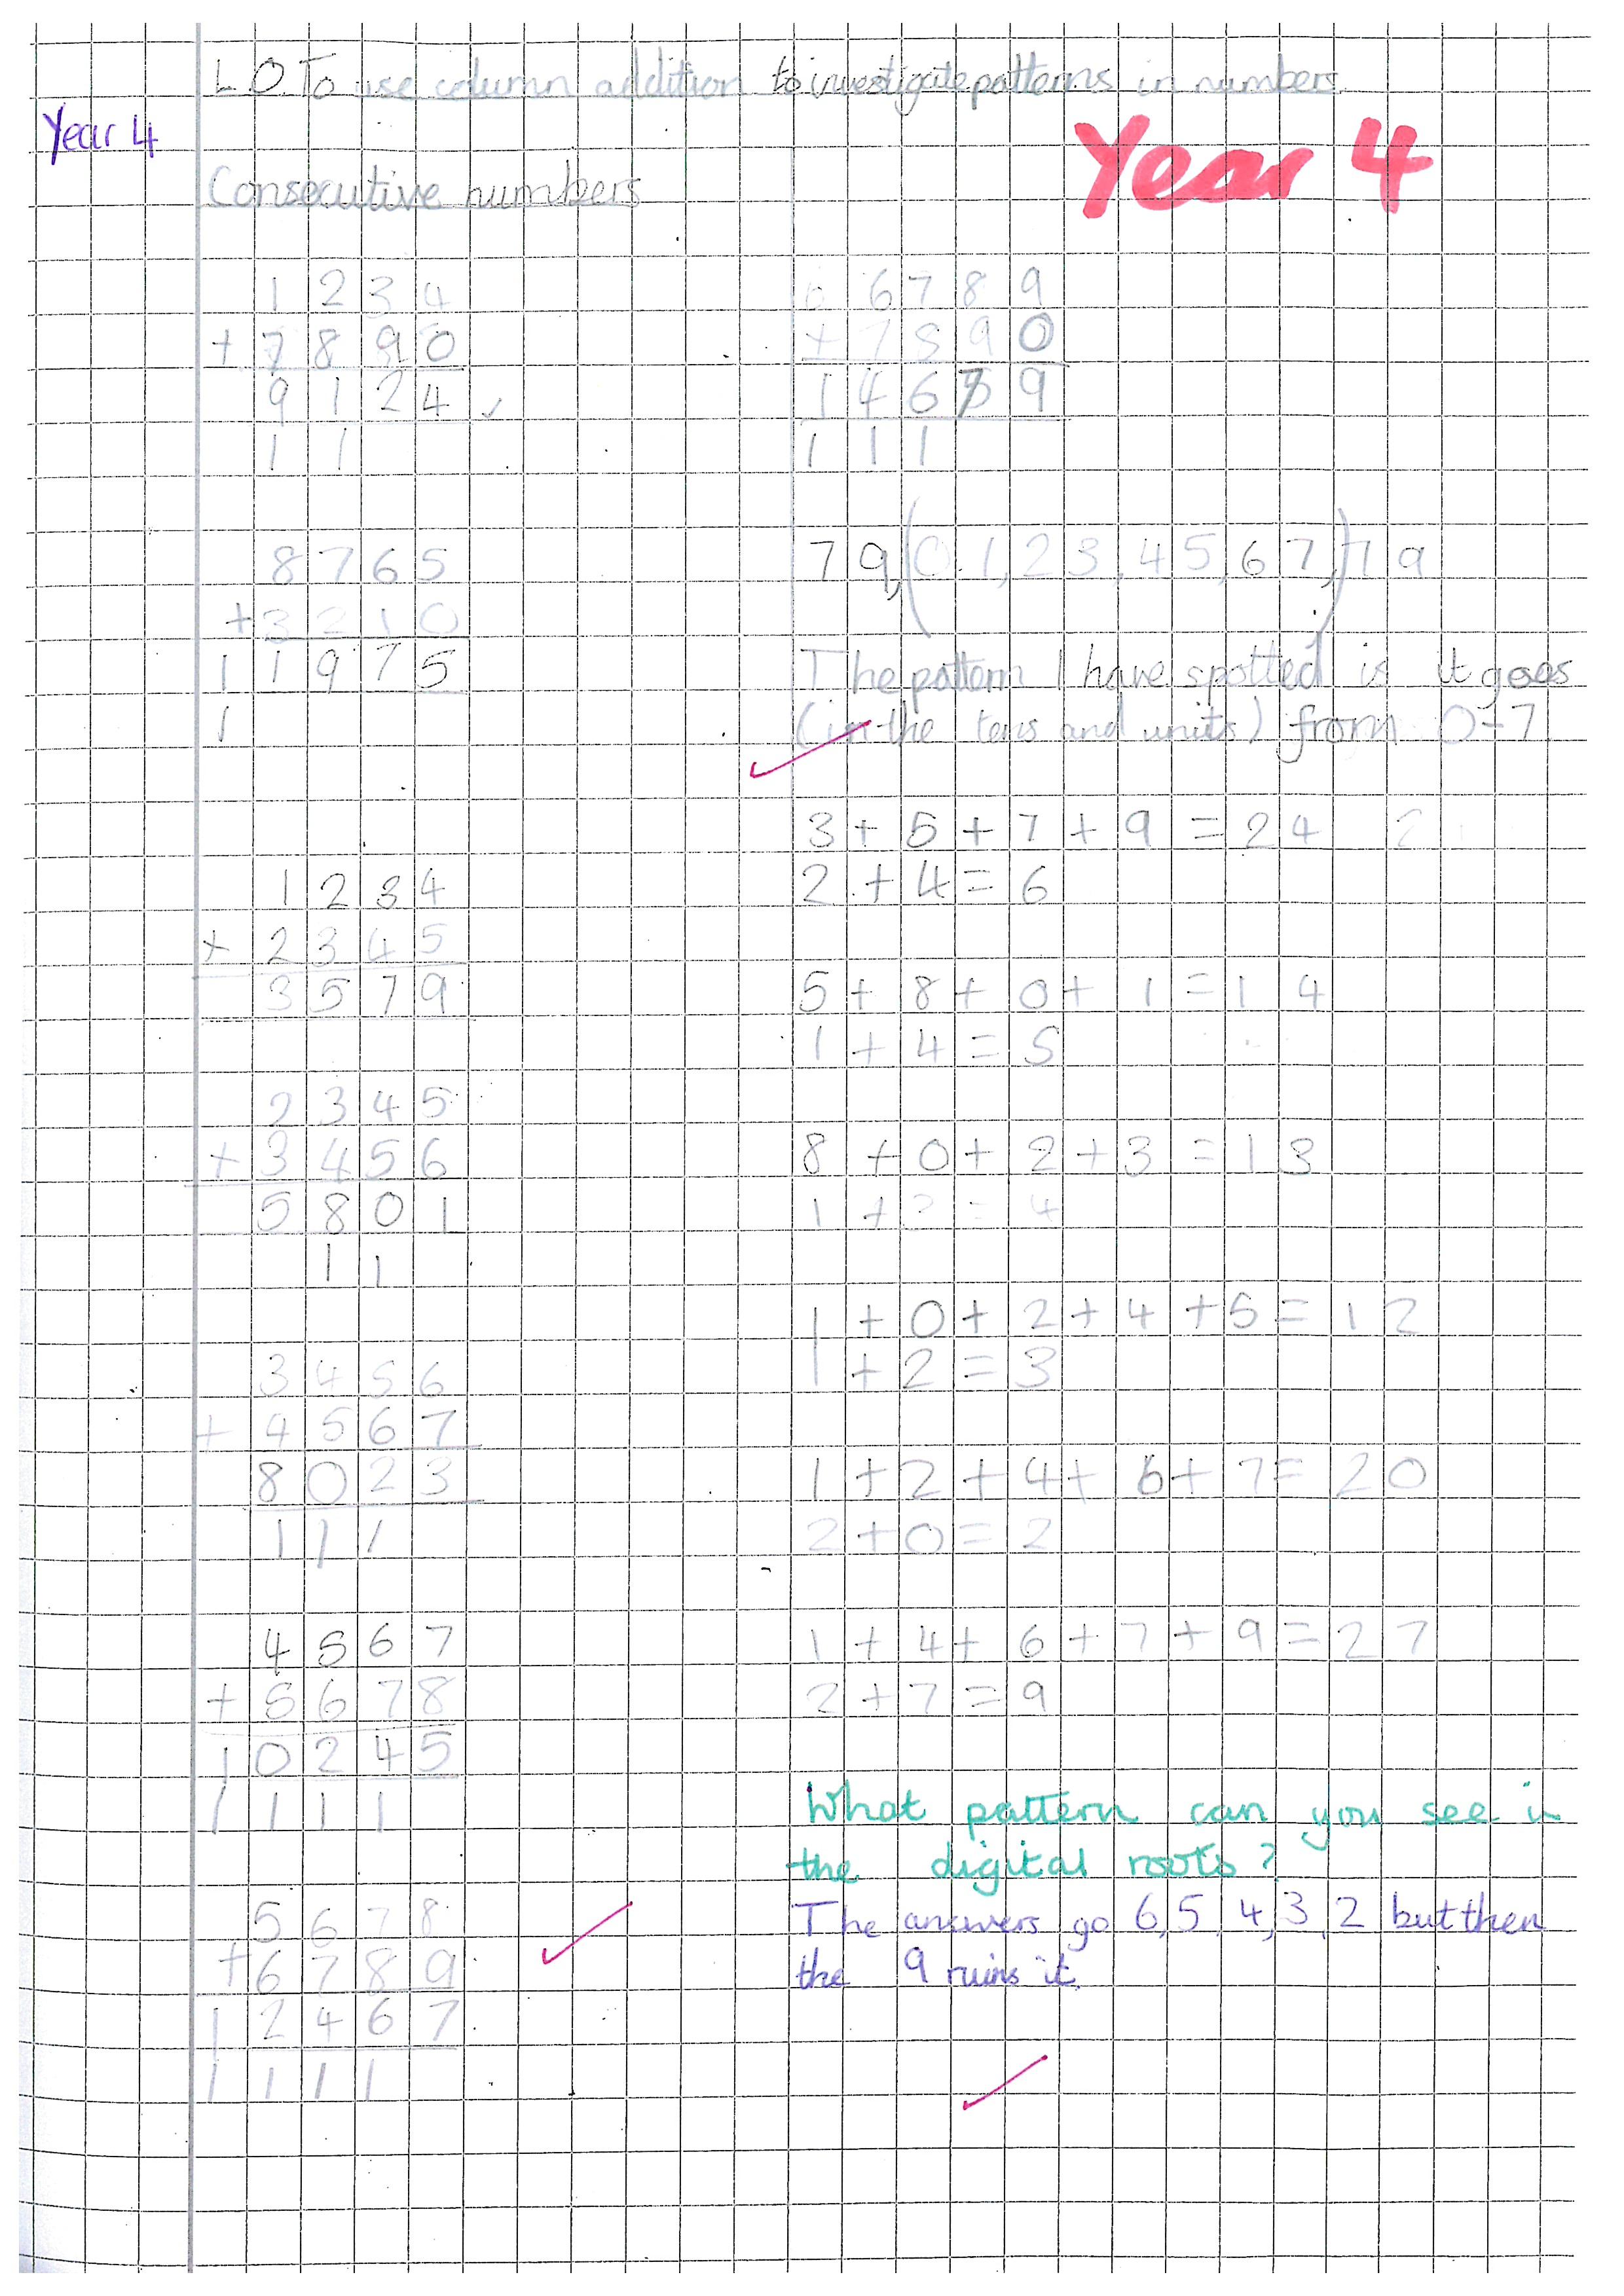 L.O. To use column addition to investigate patterns in numbers.
Year 4
Year 4
Consecutive numbers
1 2 3 4
+ 7 8 9 0
9 1 2 4 ✓
1 1
8 7 6 5
+ 3 2 1 0
1 1 9 7 5
1
1 2 3 4
+ 2 3 4 5
3 5 7 9
2 3 4 5
+ 3 4 5 6
5 8 0 1
1 1
3 4 5 6
+ 4 5 6 7
8 0 2 3
1 1 1
4 5 6 7
+ 5 6 7 8
1 0 2 4 5
1 1 1 1
5 6 7 8
+ 6 7 8 9
1 2 4 6 7
1 1 1 1
6 7 8 9
+ 7 8 9 0
1 4 6 7 9
1 1 1
7 9, (0 1, 2 3, 4 5, 6 7,) 7 9
The pattern I have spotted is it goes
(in the tens and units) from 0-7
3 + 5 + 7 + 9 = 2 4
2 + 4 = 6
5 + 8 + 0 + 1 = 1 4
1 + 4 = 5
8 + 0 + 2 + 3 = 1 3
1 + 3 = 4
1 + 0 + 2 + 4 + 5 = 1 2
1 + 2 = 3
1 + 2 + 4 + 6 + 7 = 2 0
2 + 0 = 2
1 + 4 + 6 + 7 + 9 = 2 7
2 + 7 = 9
What pattern can you see in
the digital roots?
The answers go 6, 5, 4, 3, 2 but then
the 9 ruins it.